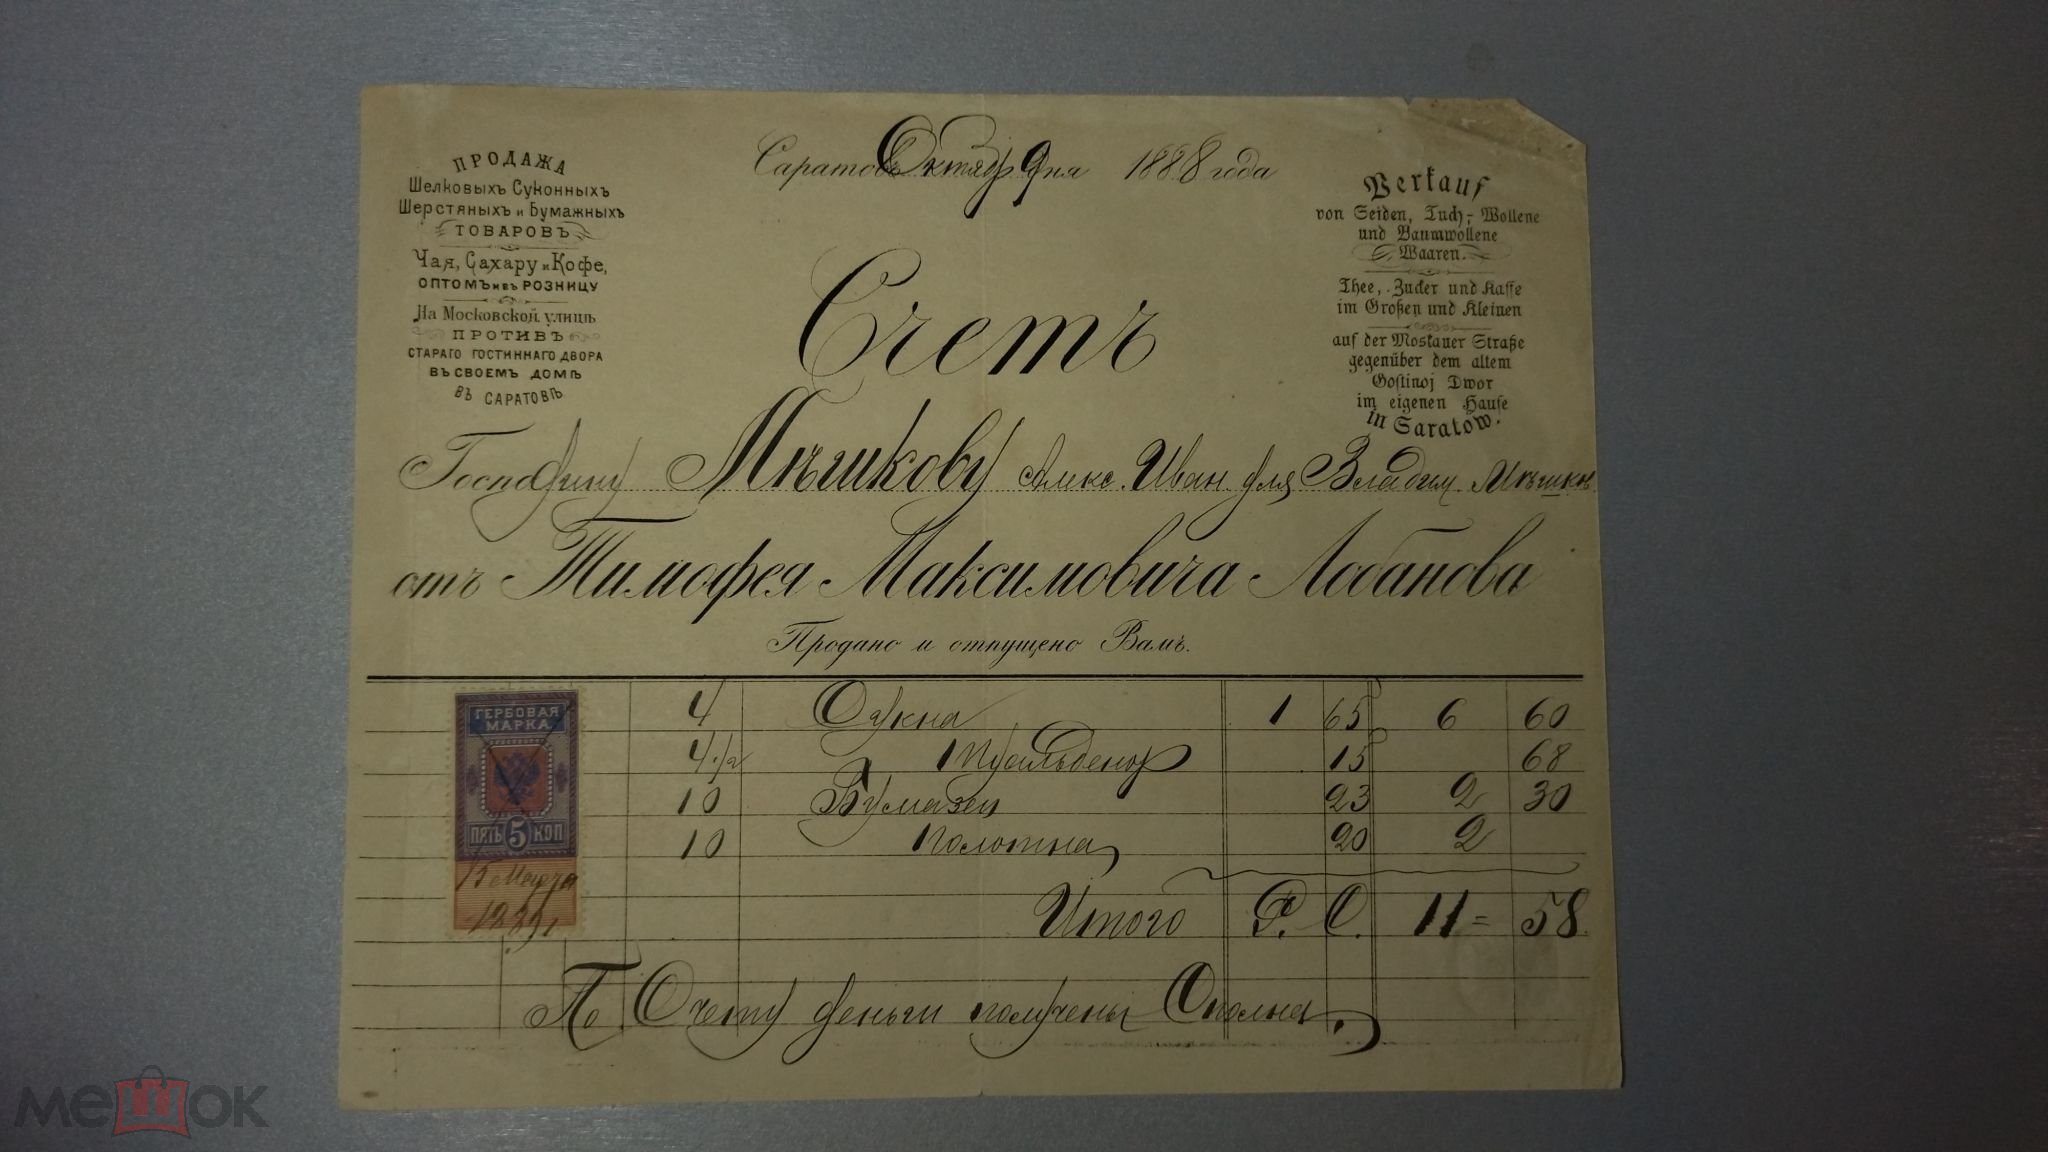 ПРОДАЖА
Шелковыхъ Суконныхъ
Шерстяныхъ и Бумажныхъ
ТОВАРОВЪ
Чая, Сахару и Кофе,
ОПТОМЪ и въ РОЗНИЦУ
На Московской улицѣ
ПРОТИВЪ
СТАРАГО ГОСТИННАГО ДВОРА
ВЪ СВОЕМЪ ДОМѢ
ВЪ САРАТОВѢ
Саратовъ Октября 9 дня 1888 года
Verkauf
von Seiden, Tuch,- Wollene
und Baumwollene
Waaren.
Thee, Zucker und Kaffe
im Großen und Kleinen
auf der Moskauer Straße
gegenüber dem altem
Gostinoj Dwor
im eigenen Hause
in Saratow.
Счетъ
Господину Мѣшкову Алекс. Иван. для Владим. Мѣшк
отъ Тимофея Максимовича Лобанова
Продано и отпущено Вамъ.
4 Сукна 1 65 6 60
4 1/2 15 68
10 Бумазеи 23 2 30
10 Полотна 20 2
Итого Р. С. 11= 58
По Счету деньги получены Сполна.
ГЕРБОВАЯ
МАРКА
ПЯТЬ 5 КОП
Марта
мешок